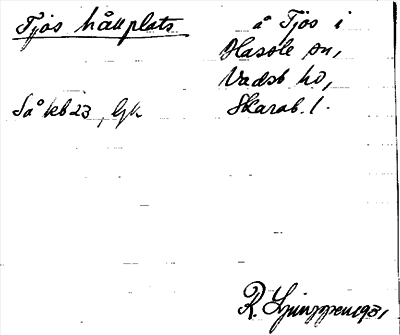 Tjos hållplats
å Tjös i
Hassle sn,
Vadsb hd,
Skarab. l.
Så keb 23, Gk
R. Ljunggren 1931